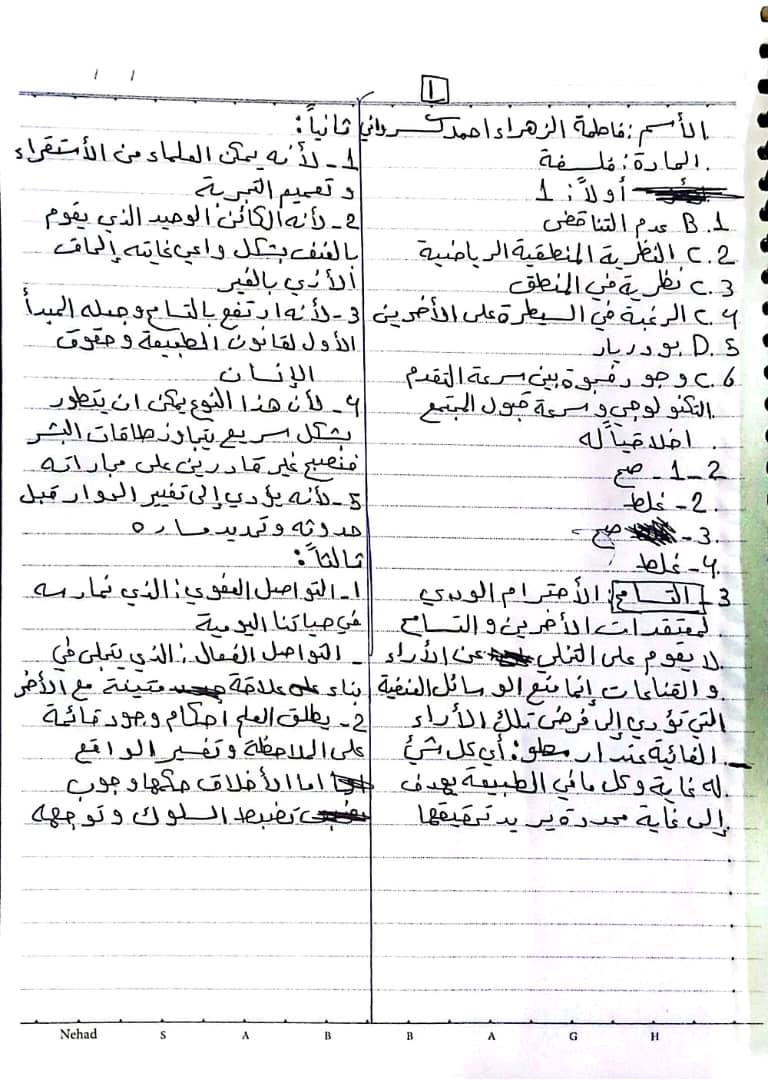 1
الأسم: فاطمة الزهراء احمد كرواني
المادة: فلسفة
أولاً: 1
1. B عدم التناقض
2. C النظرية المنطقية الرياضية
3. C نظرية في المنطق
4. C الرغبة في السيطرة على الأخرين
5. D بودريار
6. C وجود فجوة بين سرعة التقدم
التكنولوجي وسرعة قبول المجتمع
اخلاقياً له
2-1- صح
2- غلط
3- صح
4- غلط
3- التسامح: الأحترام الودي
لمعتقدات الأخرين و التسامح
لا يقوم على التخلي عن الأراء
و القناعات إنما منع الوسائل العنفية
التي تؤدي إلى فرض تلك الأراء
- الغائية عند ارسطو: أي كل شئ
له غاية وكل ما في الطبيعة يهدف
إلى غاية محددة يريد تحقيقها
ثانياً:
1- لأنه يمكن العلماء من الأستقراء
و تعميم التجربة
2- لأنه الكائن الوحيد الذي يقوم
بالعنف بشكل واعي غايته إلحاق
الأذى بالغير
3- لأنه ارتفع بالتسامح وجعله المبدأ
الأول لقانون الطبيعة و حقوق
الإنسان
4- لأن هذا النوع يمكن ان يتطور
بشكل سريع يتجاوز طاقات البشر
فنصبح غير قادرين على مجاراته
5- لأنه يؤدي إلى تفير الحوار قبل
حدوثه وتحديد مساره
ثالثاً:
1- التواصل العفوي: الذي نمارسه
في حياتنا اليومية
- التواصل الفعال: الذي يتجلى في
بناء علاقة متينة مع الأخر
2- يطلق العلم احكام وجود قائمة
على الملاحظة و تفسير الواقع
اما الأخلاق حكمها وجوب
تضبط السلوك و توجهه
Nehad S A B B A G H